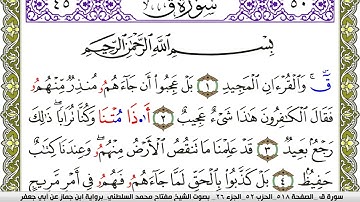 ٤٥ سُورَةُ ق ٥٠
بِسْمِ ٱللَّهِ ٱلرَّحْمَٰنِ ٱلرَّحِيمِ
قٓ وَٱلْقُرْءَانِ ٱلْمَجِيدِ ١ بَلْ عَجِبُوٓا۟ أَن جَآءَهُمُۥ مُنذِرٌ مِّنْهُمُۥ
فَقَالَ ٱلْكَٰفِرُونَ هَٰذَا شَىْءٌ عَجِيبٌ ٢ أَ۟ذَا مُتْنَا وَكُنَّا تُرَابًا ذَٰلِكَ
رَجْعٌۢ بَعِيدٌ ٣ قَدْ عَلِمْنَا مَا تَنقُصُ ٱلْأَرْضُ مِنْهُمُۥ وَعِندَنَا كِتَٰبٌ
حَفِيظٌۢ ٤ بَلْ كَذَّبُوا۟ بِٱلْحَقِّ لَمَّا جَآءَهُمُۥ فَهُمُۥ فِىٓ أَمْرٍ مَّرِيجٍ
سورة ق ـ الصفحة ٥١٨ ـ الحزب ٥٢ ـ الجزء ٢٦ ـ بصوت الشيخ مفتاح محمد السلطني برواية ابن جماز عن أبي جعفر